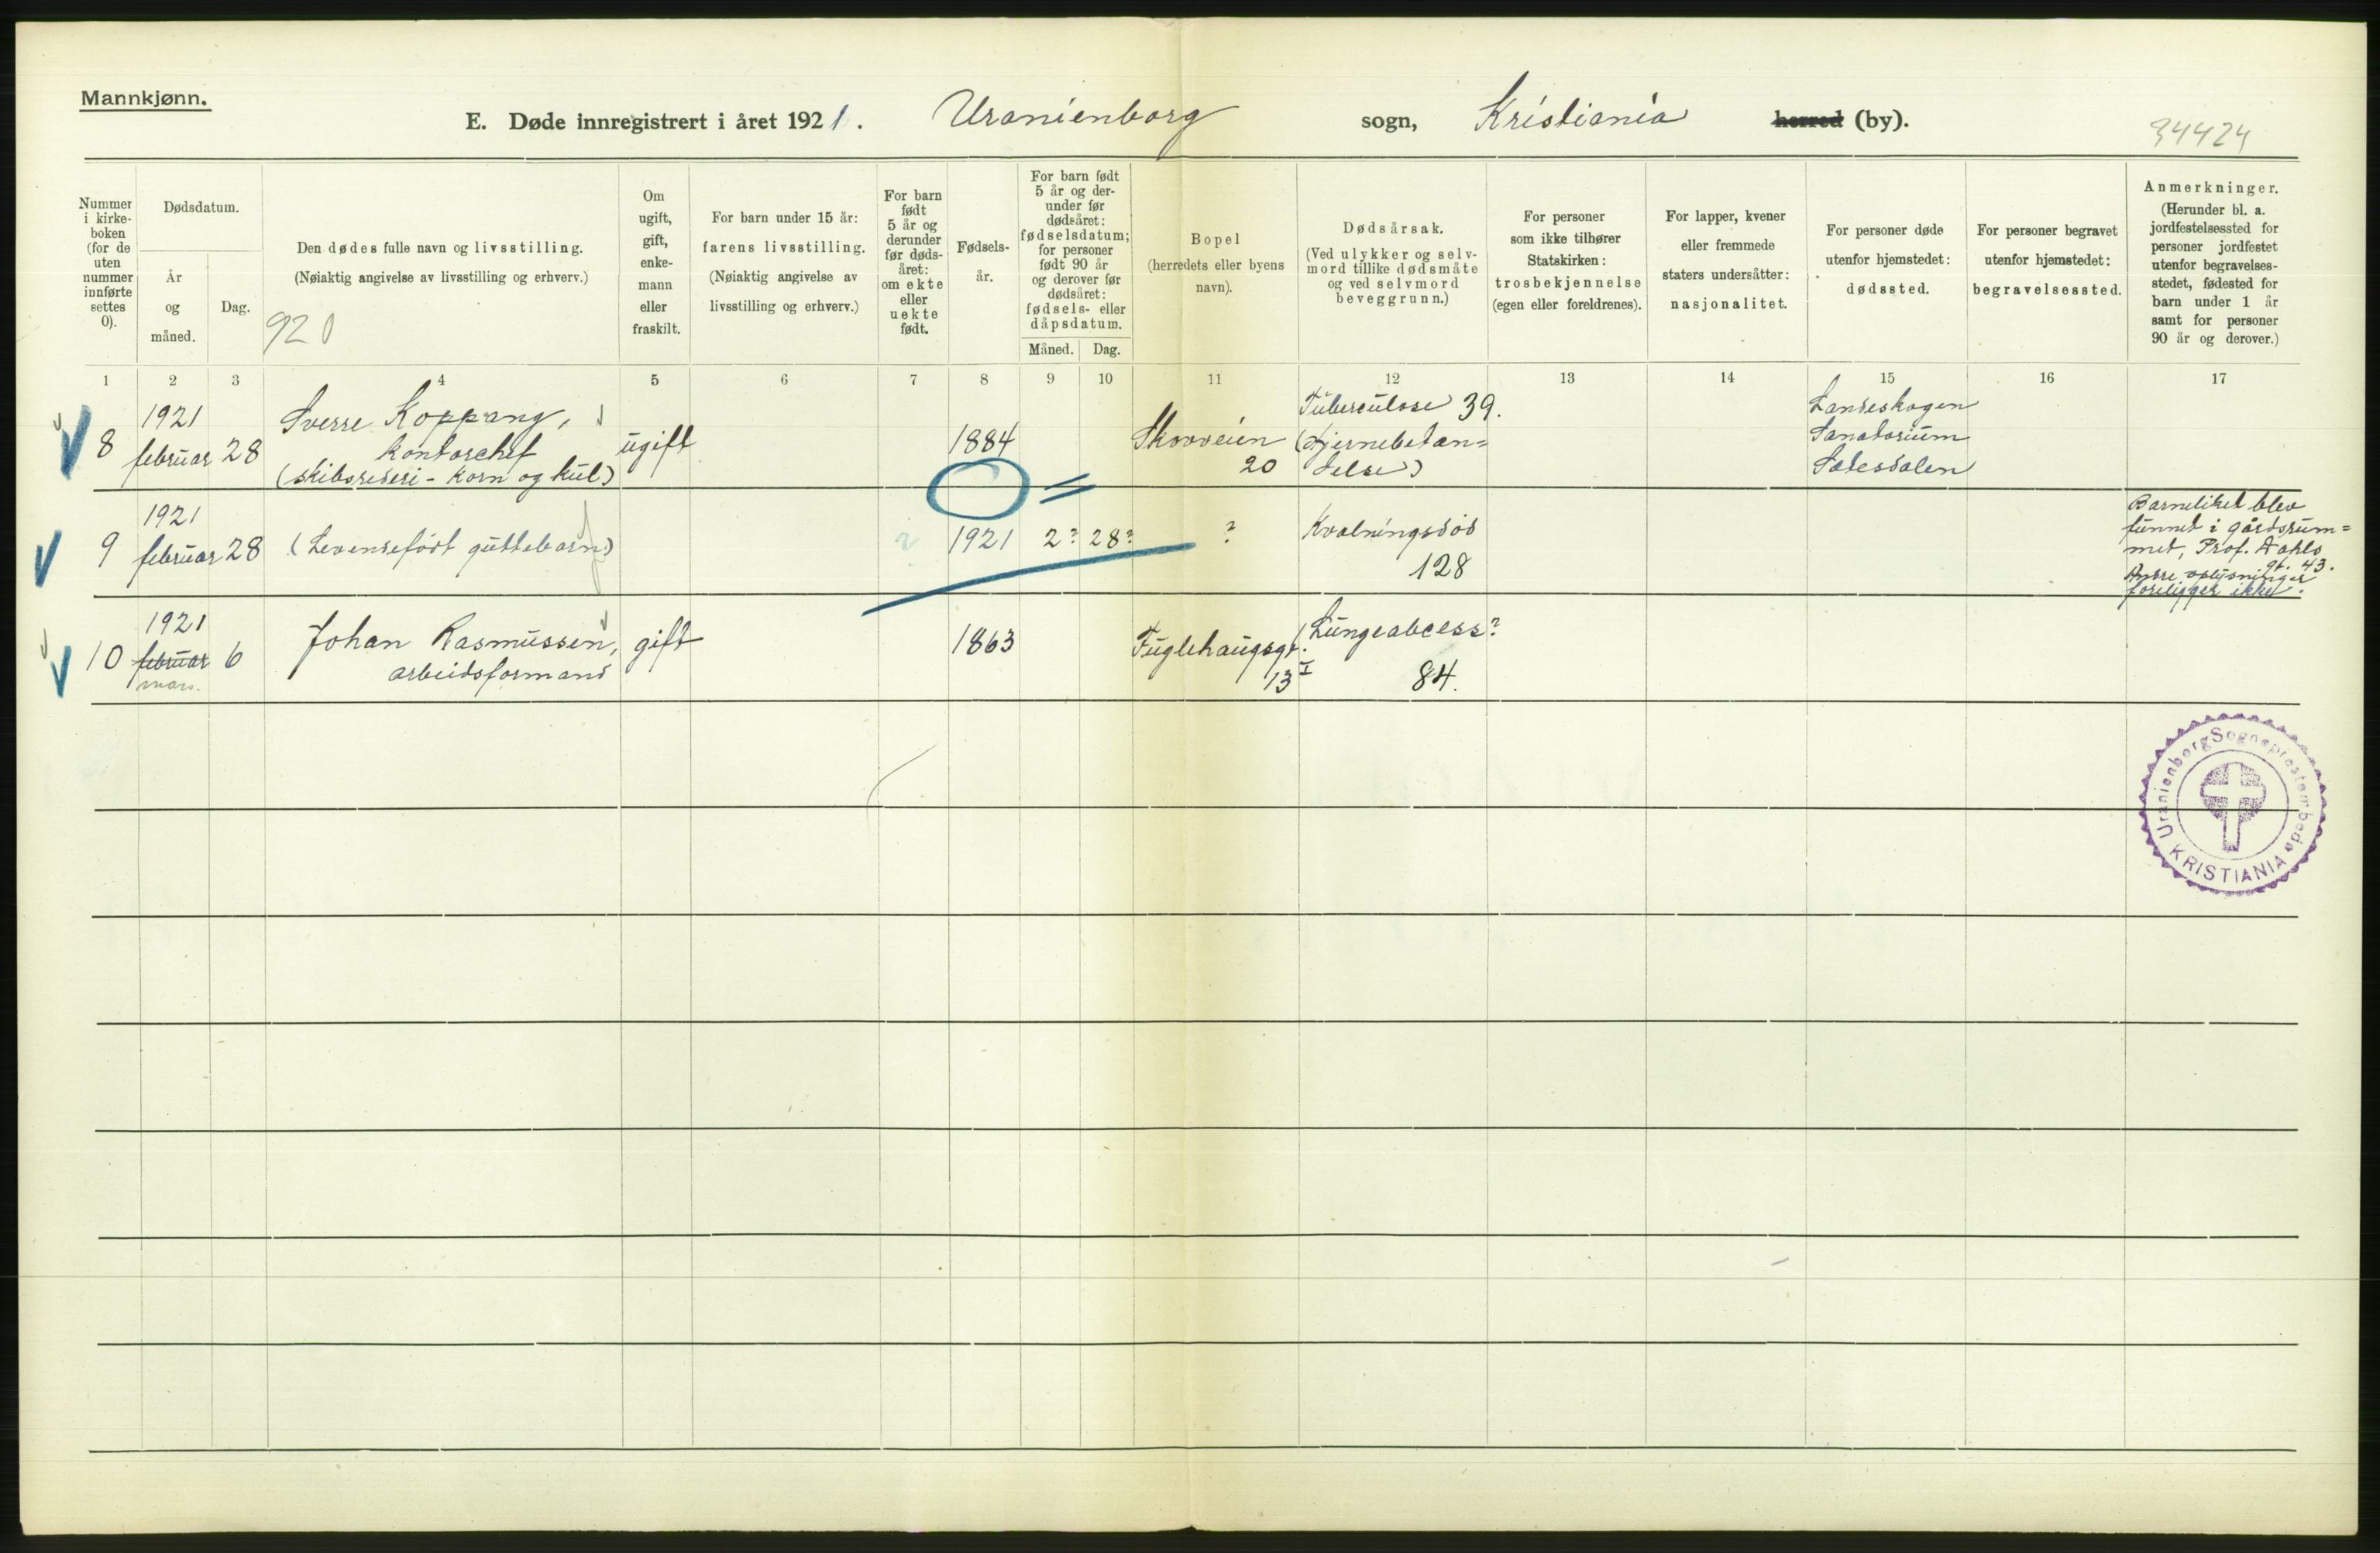 Mannkjønn.
E. Døde innregistrert i året 1921. Uranienborg sogn, Kristiania herred (by).
34424
Nummer i kirke-boken (for de uten nummer innførte settes 0).
Dødsdatum.
År og måned.
Dag.
Den dødes fulle navn og livsstilling.
(Nøiaktig angivelse av livsstilling og erhverv.)
920
Om ugift, gift, enke-mann eller fraskilt.
For barn under 15 år:
farens livsstilling.
(Nøiaktig angivelse av
livsstilling og erhverv.)
For barn født 5 år og derunder før døds-året: om ekte eller uekte født.
Fødsels-år.
For barn født 5 år og der-under før dødsåret: fødselsdatum; for personer født 90 år og derover før dødsåret: fødsels- eller dåpsdatum.
Måned. Dag.
Bopel
(herredets eller byens
navn).
Dødsårsak.
(Ved ulykker og selv-
mord tillike dødsmåte
og ved selvmord
beveggrunn.)
For personer
som ikke tilhører
Statskirken:
trosbekjennelse
(egen eller foreldrenes).
For lapper, kvener
eller fremmede
staters undersåtter:
nasjonalitet.
For personer døde
utenfor hjemstedet:
dødssted.
For personer begravet
utenfor hjemstedet:
begravelsessted.
Anmerkninger.
(Herunder bl. a.
jordfestelsessted for
personer jordfestet
utenfor begravelses-
stedet, fødested for
barn under 1 år
samt for personer
90 år og derover.)
1 2 3 4 5 6 7 8 9 10 11 12 13 14 15 16 17
8
1921
februar 28
Sverre Koppang,
kontorchef
(skibsrederi - korn og kul)
ugift
1884
Skovveien
20
Tuberculose 39.
(Hjernebetæn=
delse)
Landeskogen
Sanatorium
Sætesdalen
9
1921
februar 28
(Levendefødt guttebarn)
?
1921 2? 28?
?
Kvælningsdød
128
Barneliket blev
funnet i gårdsrum=
met, Prof. Dahls
gt. 43.
Andre oplysninger
foreligger ikke.
10
1921
februar 6
mars.
Johan Rasmussen,
arbeidsformand
gift
1863
Fuglehaugsgt.
13 I
Lungeabcess?
84.
Uranienborg Sogneprestembede
KRISTIANIA